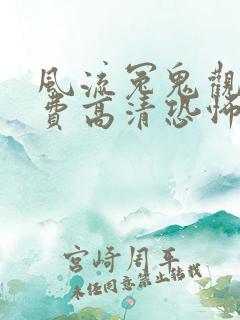 風流冤鬼觀
費高清恐怖
宮崎周平
未经同意禁止转载